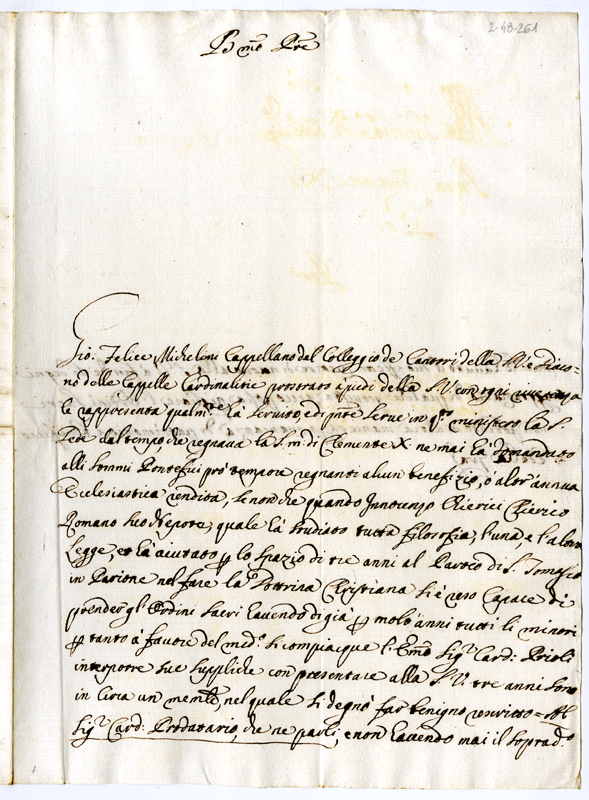 2-48-261
B.mo Pre
Gio: Felice Micheloni Cappellano del Colleggio de Cantori della S.V. e Diaco-
no delle Cappelle Cardinalitie prostrato a piedi della S.V. con ogni
le rappresenta qualm.te ha servito, ed in p.nte serve in q.to ministero la S.
Sede dal tempo, che regnava la S.m: di Clemente X. ne mai ha domandato
alli Sommi Pontefici prò tempore regnanti alcun benefizio, o altr' annua
Ecclesiastica rendita, se non che quando Innocenzo Chierici Chierico
Romano suo Nepote, quale hà studiato tutta filosofia, l'una, e l'altra
Legge, et hà aiutato p lo spazio di tre anni al Paroco di S. Tomaso
in Parione nel fare la Dottrina Christiana si è reso Capace di
prender gl'Ordini sacri havendo di già p molt'anni tutti li minori
p tanto à favore del med.o si compiacque l'Em.o Sig.r Card: Prioli
interporre sue suppliche con presentare alla S.V. tre anni sono
in circa un mem.le, nel quale si degnò far benigno rescritto = Al
Sig.r Card: Prodatario, che ne parli, e non havendo mai il soprad.o